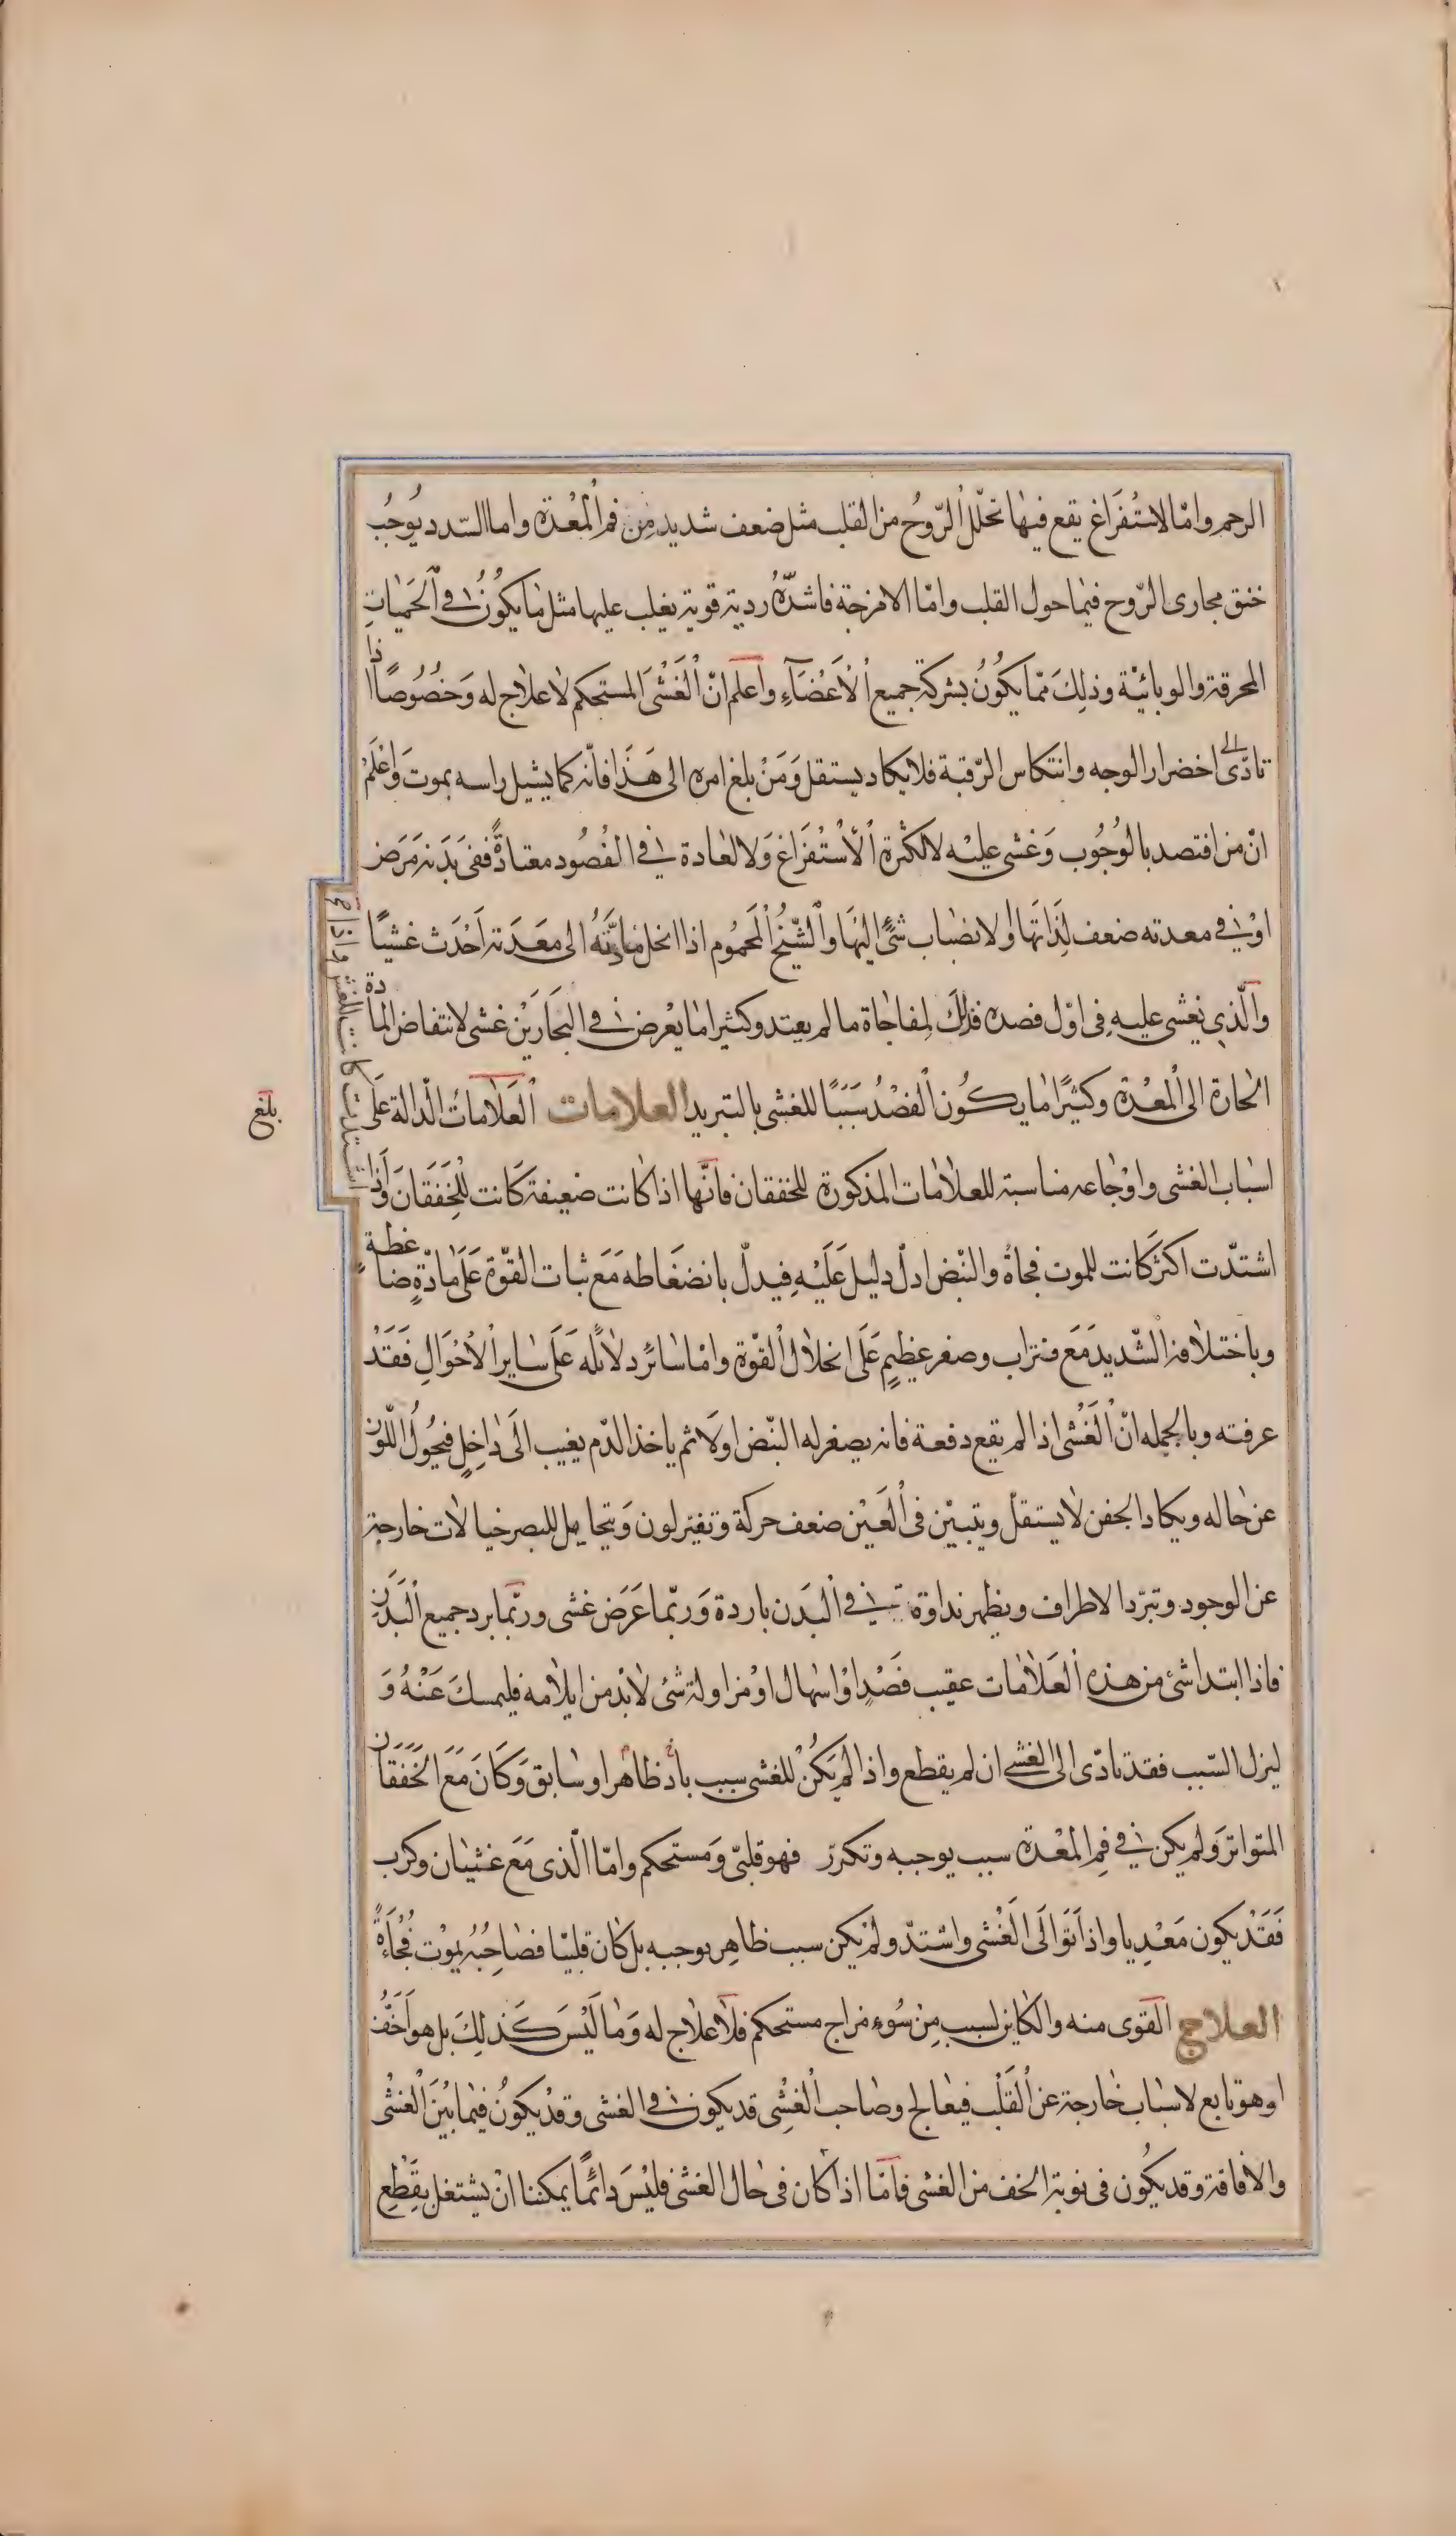 الرحم وامّا الاستُفَراغ يقع فيها تحلّل الرّوُح من القلب مثل ضعف شديد مِن فم المعْدة واما السّدد يوُجبُ
خنق مجارى الرّوح فيما حول القلب وامّا الامزجة فاشدّهُ ردية قوية يغلب عليها مثل ما يكوُنُ في الحَميات
المحرقة والوبائيّة وذلِكَ ممّا يكوُنُ بشركة جميع الْاَعْضَآءِ واعلم انّ الْغَشْىَ المستحكم لا علاج له وَخصُوُصًا اذا
تادّى الى اخضرار الوجه وانتكاس الرّقبة فلا يكاد يستقل وَمَنْ بلغ امره الى هَذَا فانّه كما يشيل راسه يموت وَاعْلَمْ
انّ من افتصد بالوُجوُب وَغشى عليْه لا لكثرة الْاسْتُفَراغ وَلا لعادة في الفصُود معتادةً ففى بَدَنه مَرَض
اوْ في معدته ضعف لِذَاتَها اولا نضباب شئً اليْهَا والشّيخُ الْمَحموُم اذا انحل مادّتهُ الى معَدَته اَحْدَث غشيًا
والّذِي يُغشى عليهِ فى اوّل فصده فذلِكَ لمفاجاة ما لم يعتد وكثيرا ما يعْرض في البَحَارَيْن غشى لانتفاض المادة
الحارة الى الْمعْدة وكثيرًا ما يكوُن الْفصْدُ سَبَبًا للغشى بالتبريد العلامات الْعَلَامَاتُ الدّالة عَلَى
اسباب الغشى واوْجاعه مناسبة للعلامات المذكورة للخفقان فانّها اذا كانت ضعيفة كَانت للْخَفَقَان وَاَذا
اشتدّت اكثرَ كَانت للموت فجاةً والنّبض ادلّ دليل عَلَيْهِ فيدلّ بانضغَاطه مَعَ ثبات القوّة عَلَى مَادّةٍ ضاغطةٍ
وباختلافه الشّديد مَعَ فتراب وصغر عَظيمٍ عَلَى انحلال الْقوّة وامّا سائرُ دلائله عَلَى سَاير الْاحْوَالِ فَقَدْ
عرفته وبالجمله انّ الْغَشْى اذا لم يقع دفعة فانه يصغر له النّبض اولا ثم ياخذ الدّم يغيب الَى دَاخِلٍ فيحُوُلُ اللّوْن
عن حاله ويكاد الجفن لا يستقلّ ويتبيّن فى الْعَيْن ضعف حركة وتغير لون وَيتحايل للبصر خيالات خارجة
عن الوجود وتبرّد الاطراف ويظهر نداوة في الْبَدَن باردة وَربّما عَرَض غشى وربّما برد جميع الْبَدَن
فاذا ابتدا شئ من هذه الْعَلَامَات عقيب فَصْدٍ اوْ اسهال اوْ مزاولة شئ لابدّ من ايلامه فليمسكَ عَنْهُ وَ
ليزل السّبب فقد تادّى الى الغشى ان لم يقطع واذا لم يَكُنْ للغشى سبب بادٍ ظاهر او سابق وَكَانَ مَعَ الخَفَقَان
المتواتر وَلم يكن في فمِ الْمعْدة سبب يوجبه وتكررّ فهو قلبىّ وَمستحكم وامّا الّذى مَعَ غثيان وكرب
فَقَدْ يكون مَعْدِيا واذا تَوَالَى الْغَشْى واشتدّ ولمْ يكن سبب ظاهر يوجبه بل كان قلبيّا فصَاحِبُهُ يموْت فُجْأةً
العلاج القوى منه والكاين لسبب مِنْ سُوُءِ مزاج مستحكم فلا علاج له وَمَا لَيْسَ كَذلِكَ بل هو اَخَفُّ
او هو تابع لاسباب خارجة عن الْقَلْب فيعالج وصاحب الْغشْى قد يكون في الغشى وقدْ يكوُنُ فيمَا بَيْنَ الْغَشْى
والافاقة وقد يكوُن فى نوبة الخف من الغشى فامّا اذا كان فى حال الغشى فليْسَ دائمًا يمكننا انْ يشتغل بقَطْعِ
واذا
كانت للغشى
اشتدت
بلغ